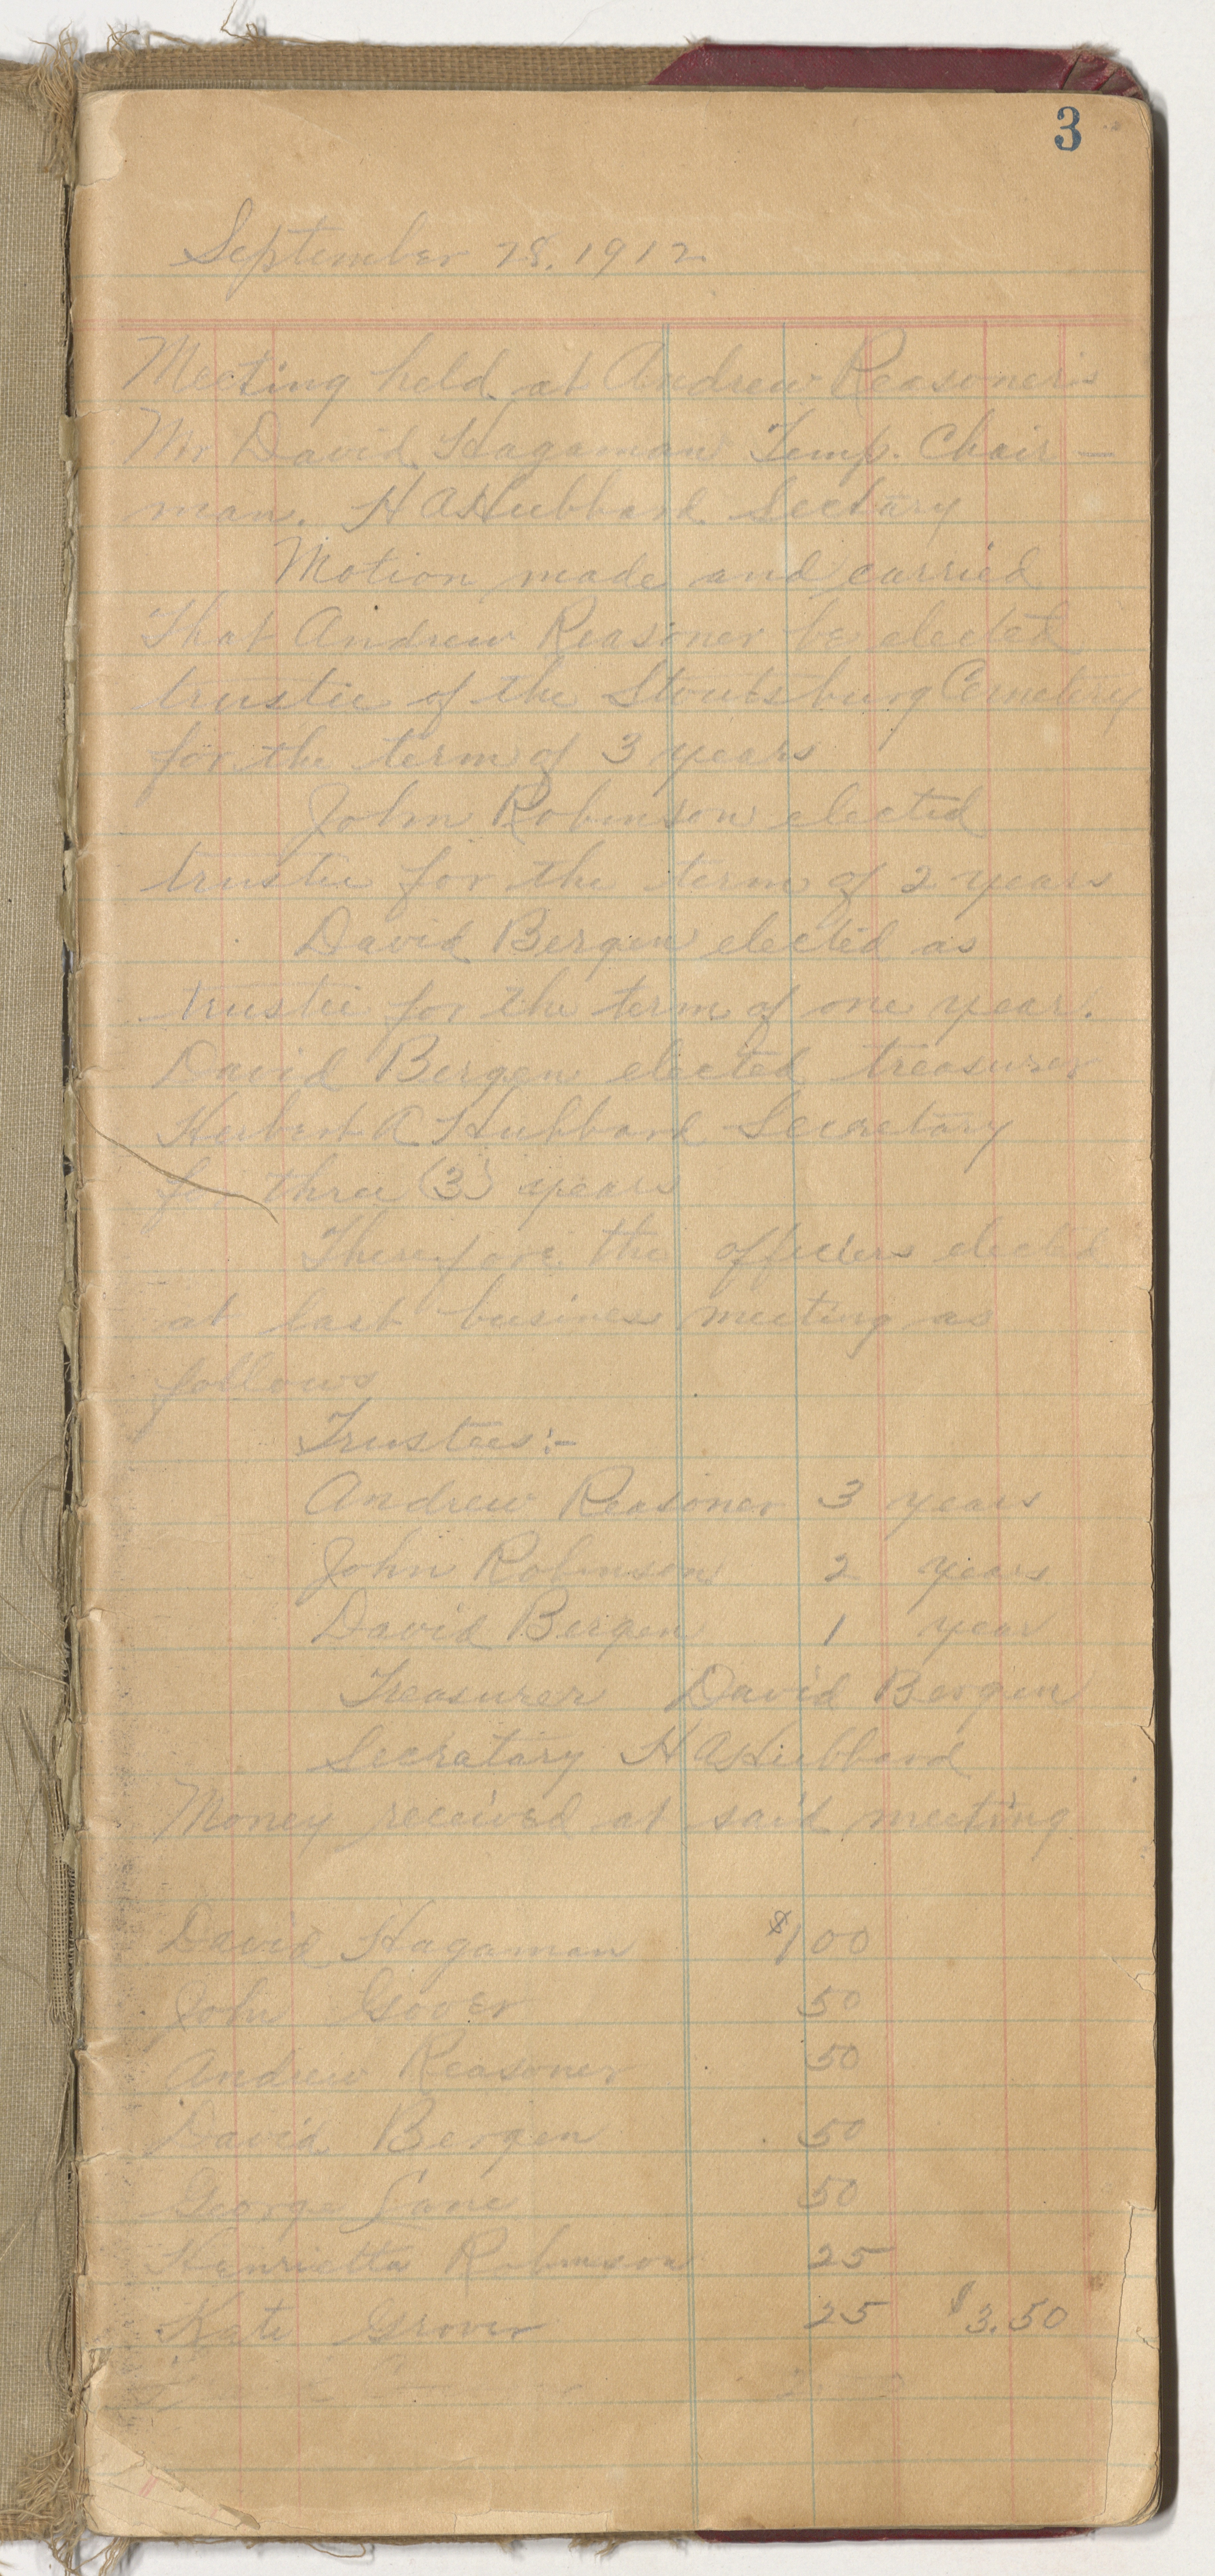 3
September 25, 1912
Meeting held at Andrew Reasoner's
Mr David Hagaman Temp. Chair—
man. H A Hubbard Sectary
Motion made and carried
That Andrew Reasoner be elected
trustee of the Stoutsburg Cemetery
for the term of 3 years
John Robinson elected
trustee for the term of 2 years
David Bergen elected as
trustee for the term of one year.
David Bergen elected treasurer
Herbert A Hubbard Secretary
for three (3) years
Therefore the officers elected
at last business meeting as
follows
Trustees:-
Andrew Reasoner 3 years
John Robinson 2 years
David Bergen 1 year
Treasurer David Bergen
Secratary H A Hubbard
Money received at said meeting
David Hagaman $1 00
John 50
Andrew Reasoner 50
David Bergen 50
George Lane 50
Henrietta Robinson 25
Kate Grover 25 $3.50